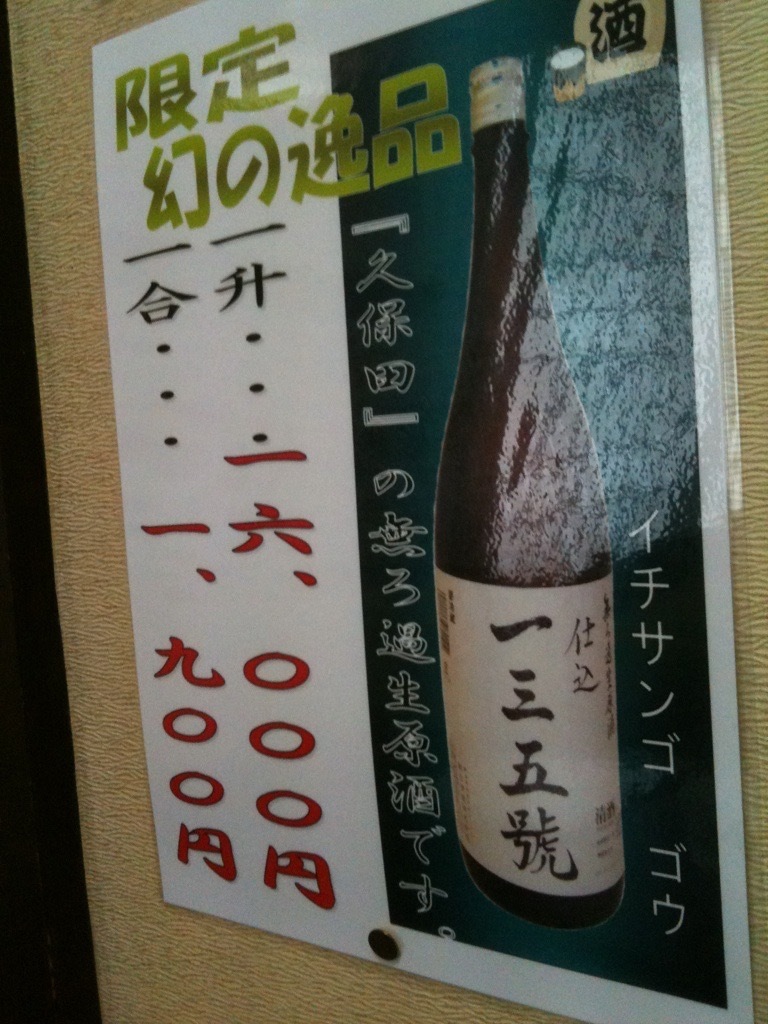 限定
幻の逸品
酒
イチサンゴ ゴウ
仕込
一三五號
清酒
『久保田』の無ろ過生原酒です。
一升・・・一六、〇〇〇円
一合・・・一、九〇〇円